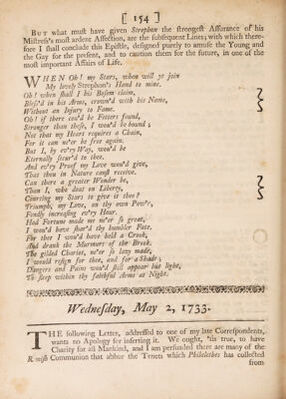 [ 154 ]
BUT what must have given Strephon the strongest Assurance of his
Mistress's most ardent Affection, are the subsequent Lines; with which there-
fore I shall conclude this Epistle, designed purely to amuse the Young and
the Gay for the present, and to caution them for the future, in one of the
most important Affairs of Life.
WHEN Oh! my Stars, when will ye join
My lovely Strephon's Hand to mine.
Oh! when shall I his Bosom claim,
Bless'd in his Arms, crown'd with his Name,
Without an Injury to Fame.
Oh! if there could be Fetters found,
Stronger than these, I wou'd be bound:
Not that my Heart requires a Chain,
For it can ne'er be free again.
But I, by ev'ry Way, wou'd be
Eternally secur'd to thee.
And ev'ry Proof my Love wou'd give,
That thou in Nature canst receive.
Can there a greater Wonder be,
Than I, who doat on Liberty,
Courting my Stars to give it thee?
Triumph, my Love, on thy own Pow'r,
Fondly increasing ev'ry Hour.
Had Fortune made me ne'er so great,
I wou'd have shar'd thy humbler Fate.
For thee I wou'd have held a Crook,
And drank the Murmurs of the Brook.
The gilded Chariot, ne'er so lazy made,
I would resign for thee, and for a Shade;
Dangers and Pains wou'd still appear but light,
To sleep within thy faithful Arms at Night.
Wednesday, May 2, 1733.
THE following Letter, addressed to one of my late Correspondents,
wants no Apology for inserting it. We ought, 'tis true, to have
Charity for all Mankind, and I am persuaded there are many of the
Romish Communion that abhor the Tenets which Philalethes has collected
from